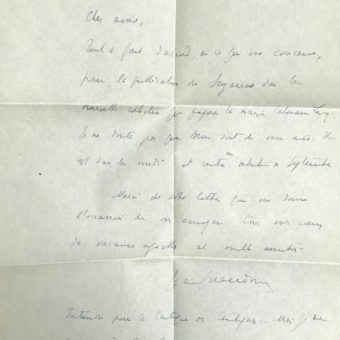 Cher ami,
Tout à fait d'accord en ce qui me concerne,
pour la publication de Suzanne dans la
nouvelle collection que prépare la maison Calmann Lévy.
Je ne doute pas que soit de mon avis. Il
est dans le midi et rentre en septembre
Merci de votre lettre qui me donne
l'occasion de vous envoyer tous mes vœux
de vacances agréables et mille amitiés
Jean Giraudoux
Entendu pour le Cantique des Cantiques.. Mais je ne